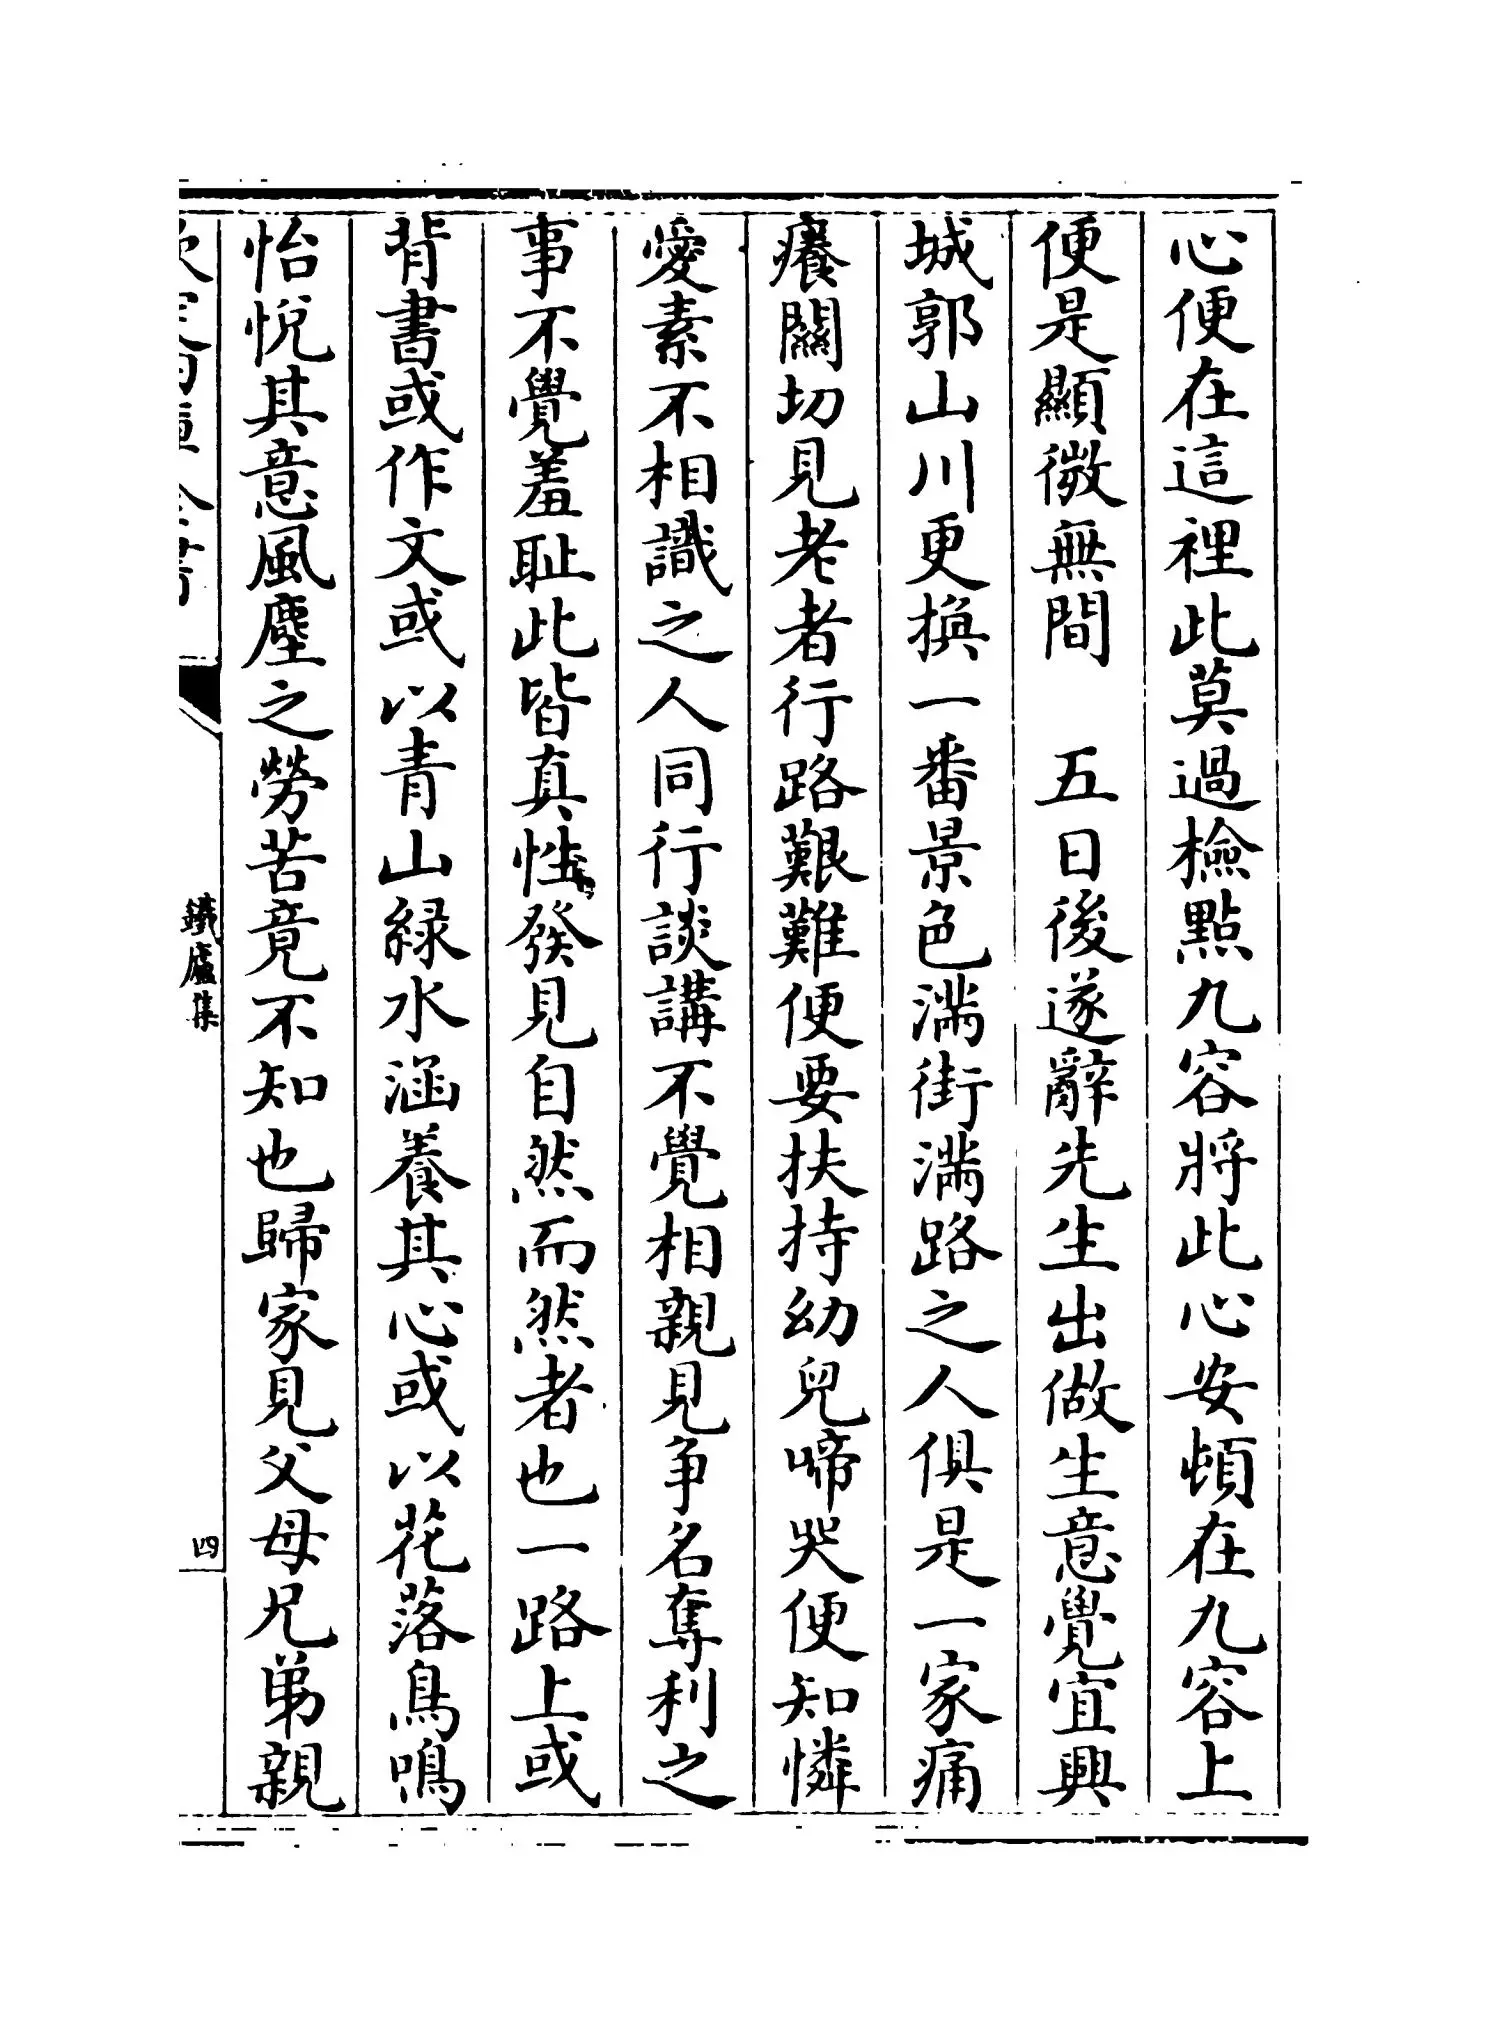 心便在這裡此莫過檢點九容將此心安頓在九容上
便是顯微無間　五日後遂辭先生出做生意覺宜興
城郭山川更換一番景色滿街滿路之人俱是一家痛
癢關切見老者行路艱難便要扶持幼兒啼哭便知憐
愛素不相識之人同行談講不覺相親見爭名奪利之
事不覺羞恥此皆真性發見自然而然者也一路上或
背書或作文或以青山綠水涵養其心或以花落鳥鳴
怡悅其意風塵之勞苦竟不知也歸家見父母兄弟親
欽定四庫全書
鐵廬集
四